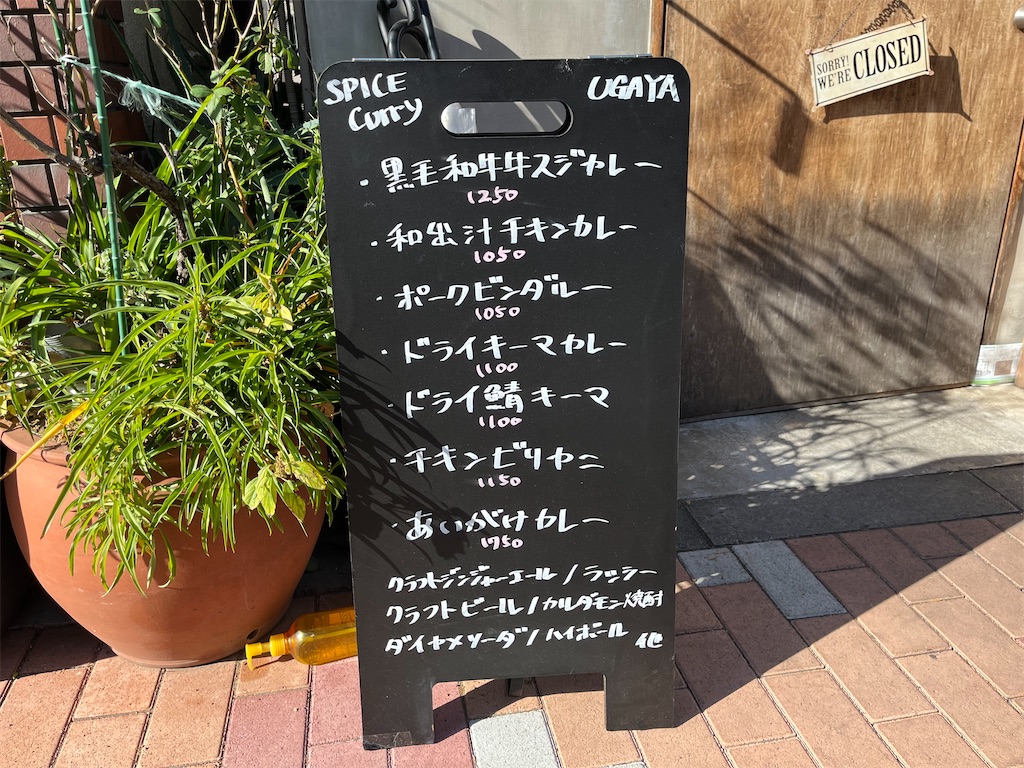 SPICE Curry
UGAYA
SORRY! WE'RE CLOSED
・黒毛和牛牛スジカレー
1250
・和出汁チキンカレー
1050
・ポークビンダルー
1050
・ドライキーマカレー
1100
・ドライ鯖キーマ
1100
・チキンビリヤニ
1150
・あいがけカレー
1750
クラフトジンジャーエール/ラッシー
クラフトビール/カルダモン焼酎
ダイヤメソーダ/ハイボール 他